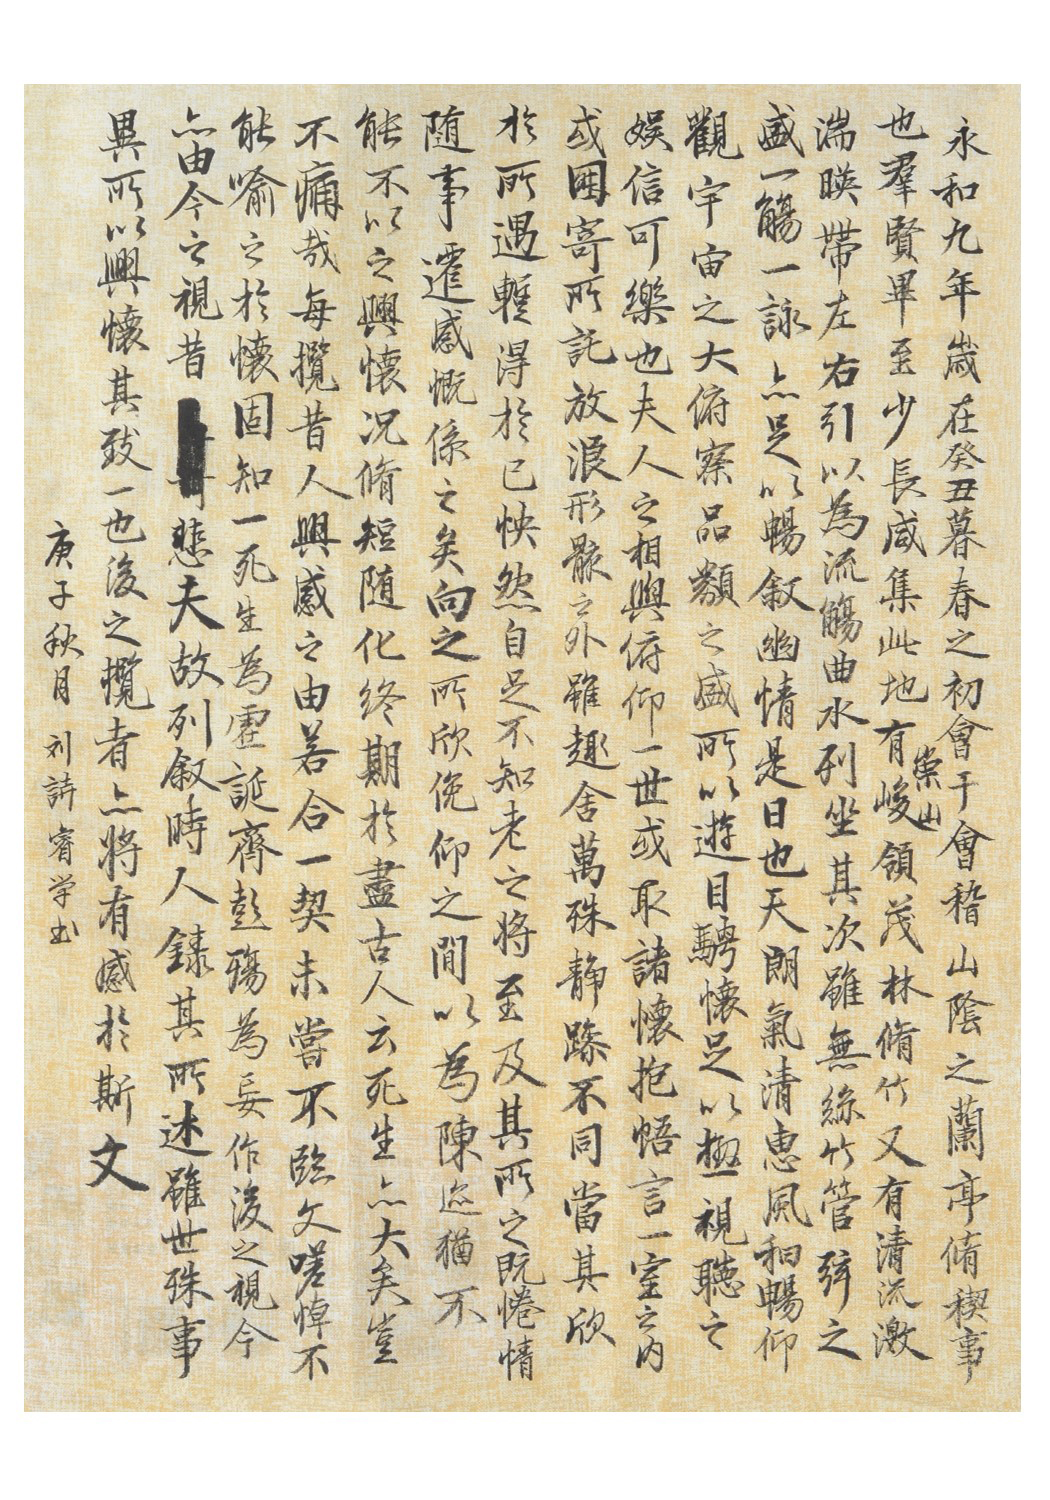 永和九年歲在癸丑暮春之初會于會稽山陰之蘭亭脩稧事
也羣賢畢至少長咸集此地有崇山峻領茂林脩竹又有清流激
湍暎帶左右引以為流觴曲水列坐其次雖無絲竹管弦之
盛一觴一詠亦足以暢敘幽情是日也天朗氣清惠風和暢仰
觀宇宙之大俯察品類之盛所以遊目騁懷足以極視聽之
娛信可樂也夫人之相與俯仰一世或取諸懷抱悟言一室之內
或因寄所託放浪形骸之外雖趣舍萬殊靜躁不同當其欣
於所遇蹔得於己怏然自足不知老之將至及其所之既惓情
隨事遷感慨係之矣向之所欣俛仰之閒以為陳迹猶不
能不以之興懷況脩短隨化終期於盡古人云死生亦大矣豈
不痛哉每攬昔人興感之由若合一契未嘗不臨文嗟悼不
能喻之於懷固知一死生為虛誕齊彭殤為妄作後之視今
亦由今之視昔悲夫故列敘時人錄其所述雖世殊事
異所以興懷其致一也後之攬者亦將有感於斯文
庚子秋月 刘詩睿学书